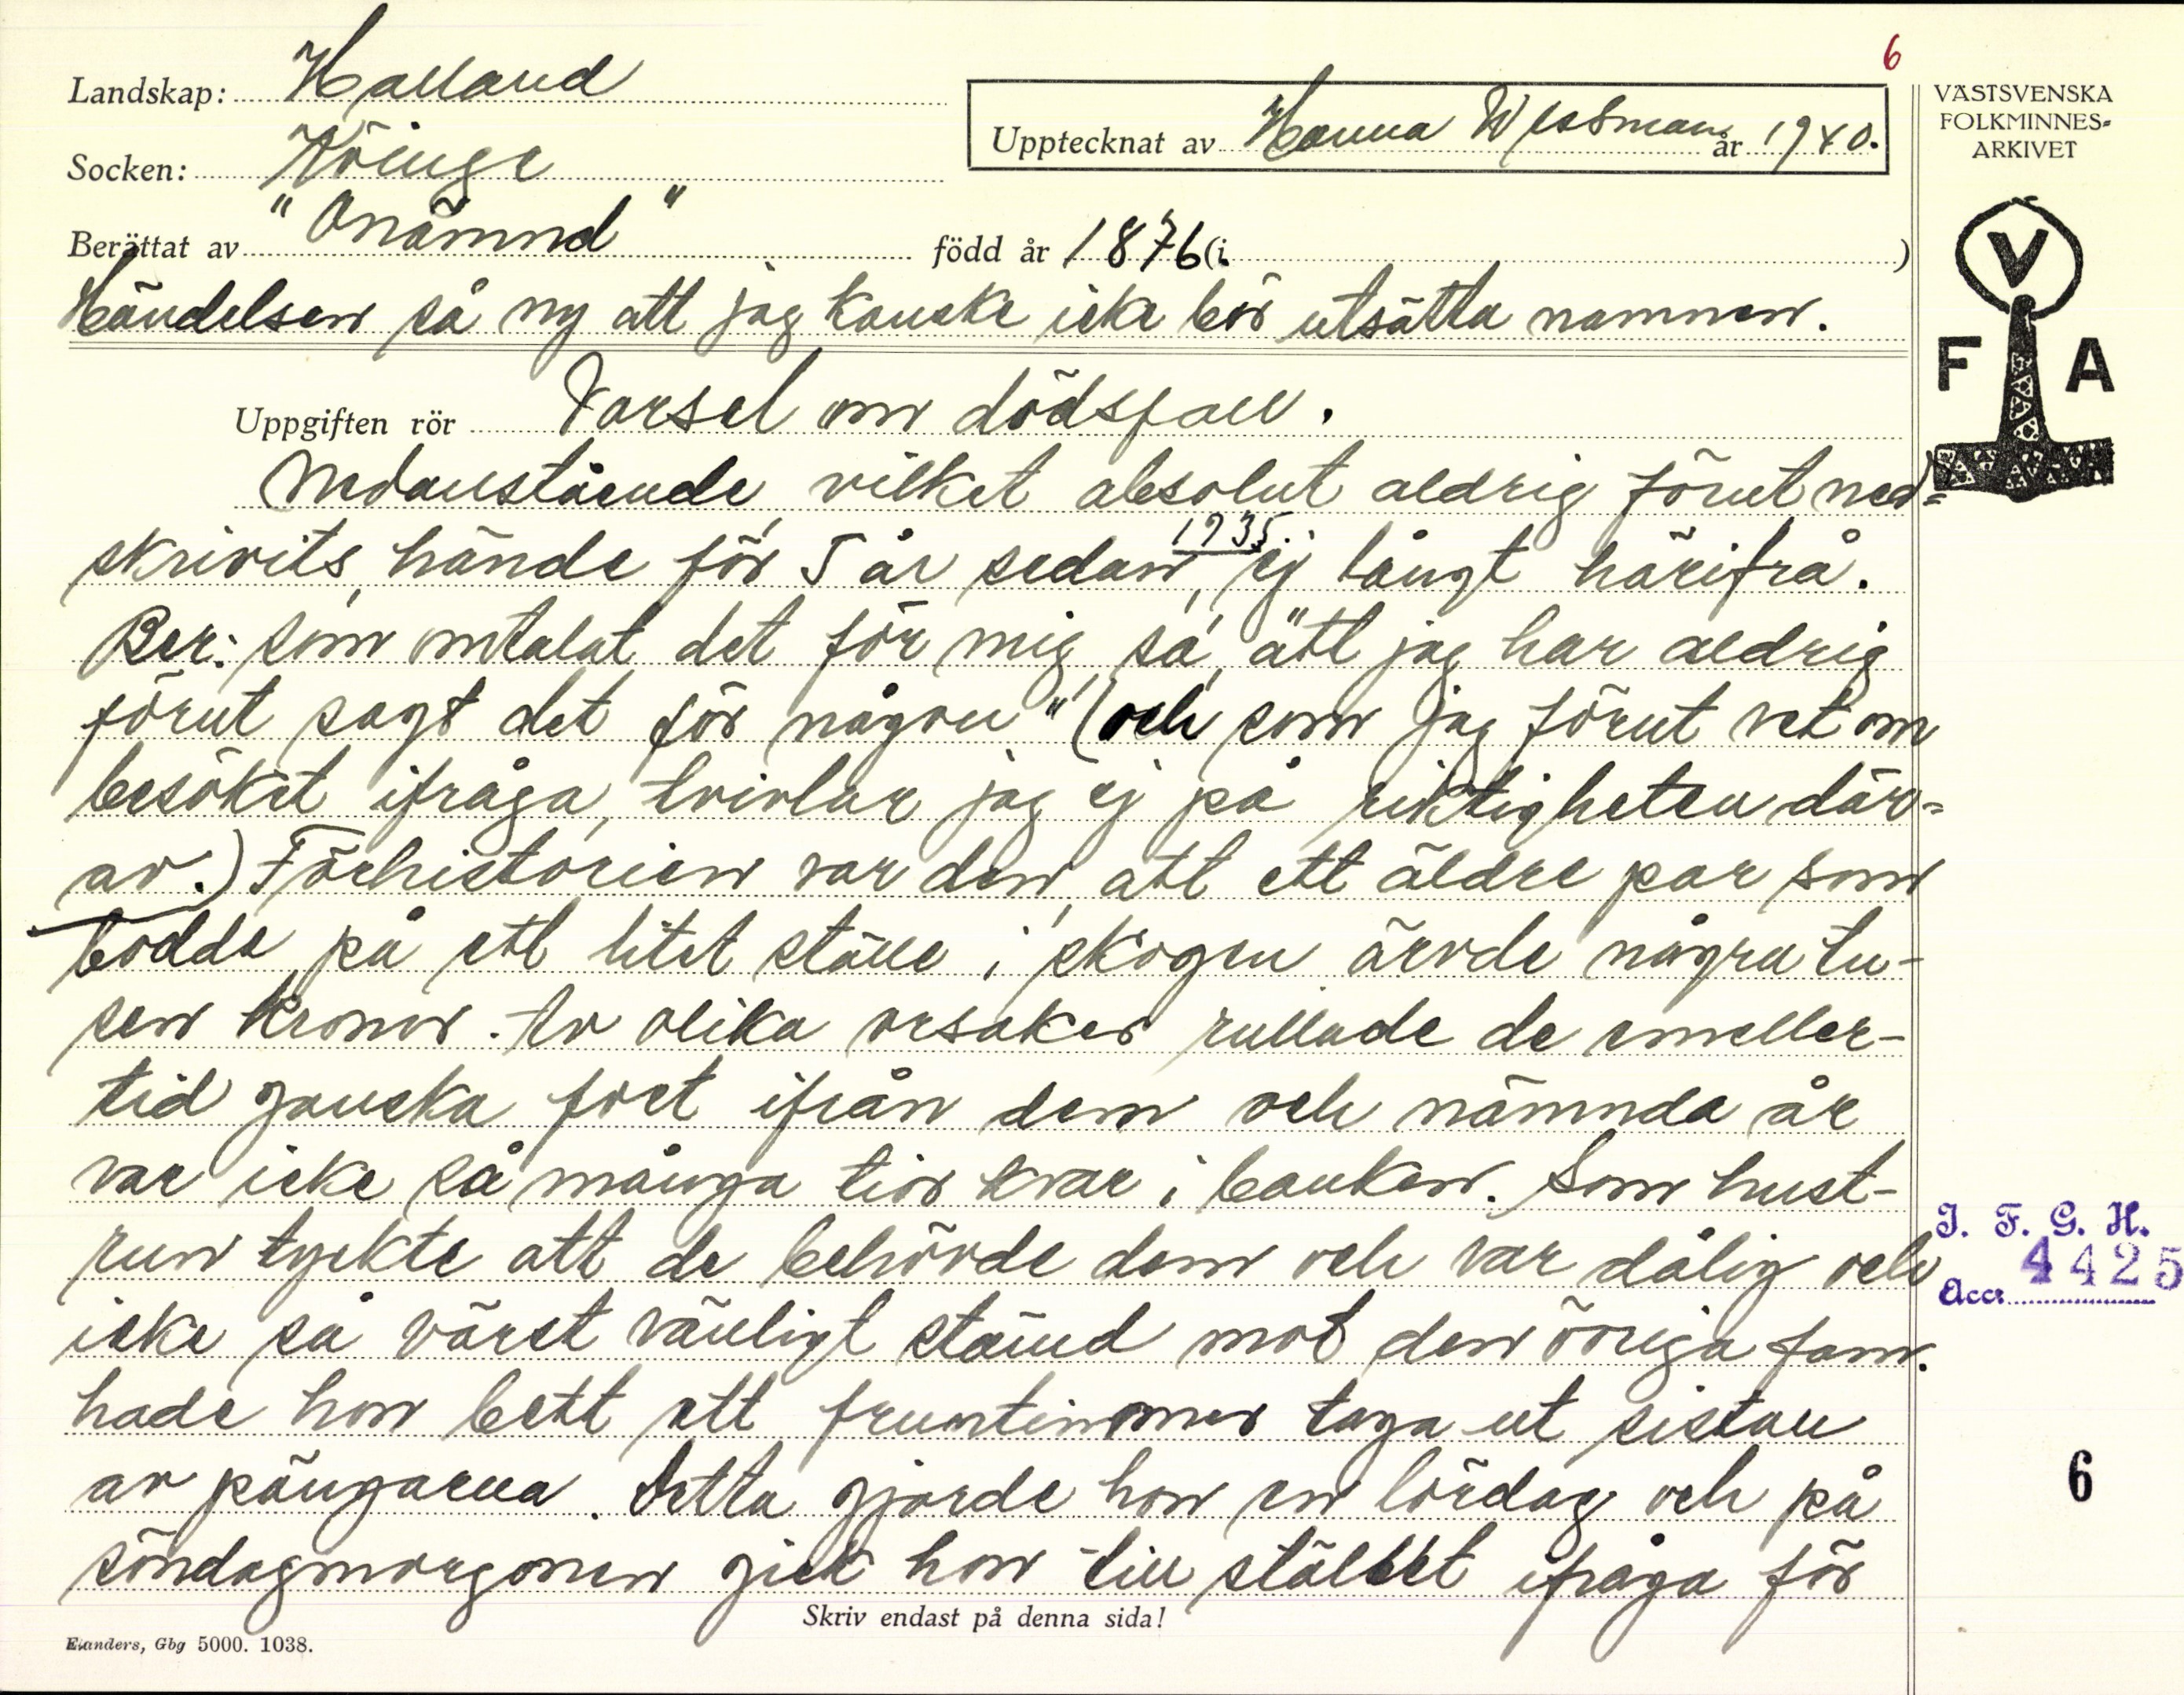 6
Landskap: Halland
Upptecknat av Hanna Wessman år 1940.
Socken: Köinge
Berättat av "Onämnd" född år 1876 (i )
Händelsen så ny att jag kanske icke bör utsätta namnen.
Uppgiften rör Varsel om dödsfall.
Nedanstående, vilket absolut aldrig förut ned=
skrivits, hände för 5 år sedan, 1935. ej långt härifrå.
Ber: som omtalat det för mig, sa, "att jag har aldrig
förut sagt det för någon" (och som jag förut vet om
besöket ifråga, tvivlar jag ej på riktigheten där=
av.) Förhistorien var den, att ett äldre par som
bodde på ett litet ställe i skogen ärvde några tu-
sen kronor. Av olika orsaker rullade de emeller-
tid ganska fort ifrån dem och nämnda år
var icke så många tior kvar i banken. Som hust-
run tyckte att de behövde dem och var dålig och
icke så värst vänligt stämd mot den övriga fam.
hade hon bett ett fruntimmer taga ut sistan
av pängarna. Detta gjorde hon en lördag och på
söndagmorgonen gick hon till stället ifråga för
Skriv endast på denna sida!
Elanders, Gbg 5000. 1038.
VÄSTSVENSKA
FOLKMINNES=
ARKIVET
V
F A
I. F. G. H.
Acc. 4425
6